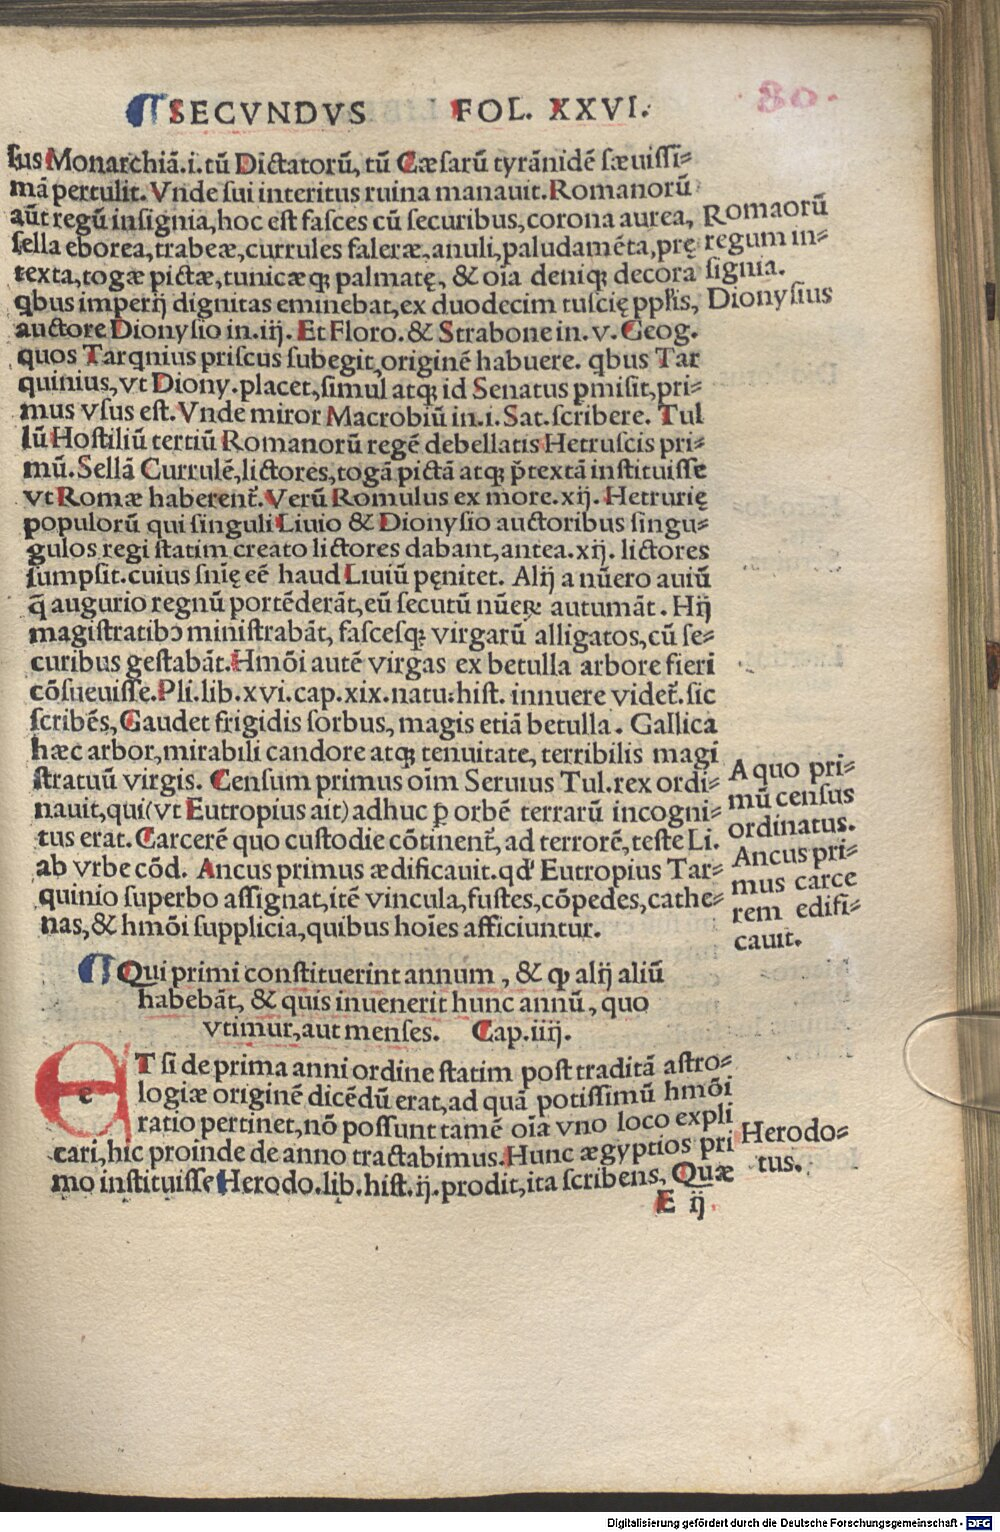 ¶ SECVNDVS FOL. XXVI.
80.
sus Monarchiā.i.tū Dictatorū, tū Cæsarū tyrānidē sæuissi⸗
mā pertulit. Vnde sui interitus ruina manauit. Romanorū
aūt regū insignia, hoc est fasces cū securibus, corona aurea,
sella eborea, trabeæ, currules faleræ, anuli, paludamēta, prę
texta, togæ pictæ, tunicæqꝫ palmatę, & oīa deniqꝫ decora
qbus imperij dignitas eminebat, ex duodecim tuscię pplis,
auctore Dionysio in.iij. Et Floro. & Strabone in.v. Geog.
quos Tarqnius priscus subegit, originē habuere. qbus Tar
quinius, vt Diony. placet, simul atqꝫ id Senatus pmisit, pri⸗
mus vsus est. Vnde miror Macrobiū in.i. Sat. scribere. Tul
lū Hostiliū tertiū Romanorū regē debellatis Hetruscis pri⸗
mū. Sellā Currulē, lictores, togā pictā atqꝫ p̄textā instituisse
vt Romæ haberent̄. Verū Romulus ex more.xij. Hetrurię
populorū qui singuli Liuio & Dionysio auctoribus singu⸗
gulos regi statim creato lictores dabant, antea.xij. lictores
sumpsit. cuius snīę eē haud Liuiū pęnitet. Alij a nūero auiū
q̄ augurio regnū portēderāt, eū secutū nūeꝝ autumāt. Hij
magistratibꝰ ministrabāt, fascesqꝫ virgarū alligatos, cū se⸗
curibus gestabāt. Hmōi autē virgas ex betulla arbore fieri
cōsueuisse. Pli. lib.xvi.cap.xix.natu:hist. innuere videt̄. sic
scribēs, Gaudet frigidis sorbus, magis etiā betulla. Gallica
hæc arbor, mirabili candore atqꝫ tenuitate, terribilis magi
stratuū virgis. Censum primus oīm Seruius Tul. rex ordi⸗
nauit, qui (vt Eutropius ait) adhuc ꝑ orbē terrarū incogni⸗
tus erat. Carcerē quo custodie cōtinent̄, ad terrorē, teste Li.
ab vrbe cōd. Ancus primus ædificauit. qd' Eutropius Tar⸗
quinio superbo assignat, itē vincula, fustes, cōpedes, cathe⸗
nas, & hmōi supplicia, quibus hoīes afficiuntur.
Romaorū
regum in⸗
signia.
Dionysius
A quo pri⸗
mū census
ordinatus.
Ancus pri⸗
mus carce
rem edifi⸗
cauit.
¶ Qui primi constituerint annum, & ꝙ alij aliū
habebāt, & quis inuenerit hunc annū, quo
vtimur, aut menses. Cap.iiij.
ET si de prima anni ordine statim post traditā astro⸗
logiæ originē dicēdū erat, ad quā potissimū hmōi
ratio pertinet, nō possunt tamē oīa vno loco expli
cari, hic proinde de anno tractabimus. Hunc ægyptios pri
mo instituisse Herodo. lib. hist. ij. prodit, ita scribens, Quæ
Herodo⸗
tus.
E ij
Digitalisierung gefördert durch die Deutsche Forschungsgemeinschaft - DFG